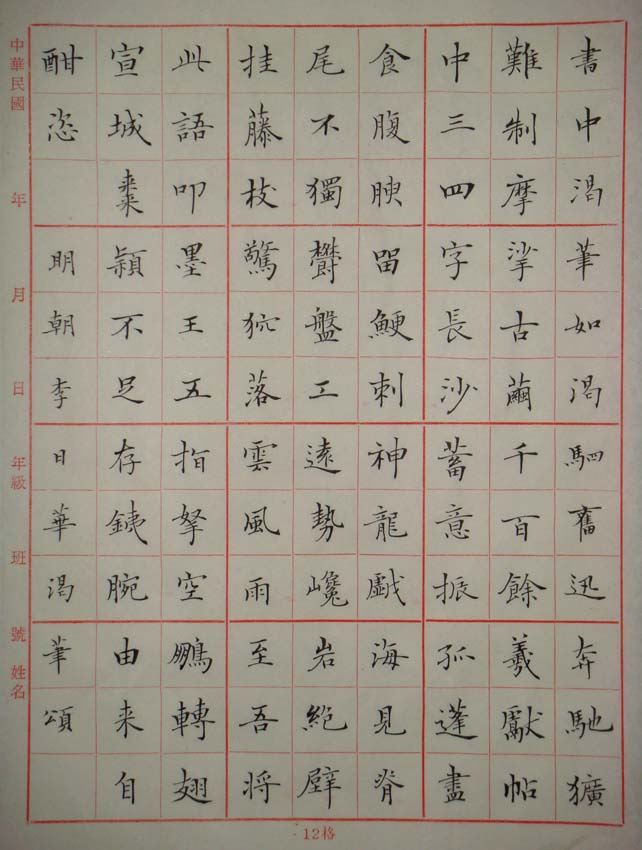 書中渴筆如渴駟奮迅奔馳獷
難制摩挲古繭千百餘羲獻帖
中三四字長沙蓄意振孤蓬盡
食腹腴留鯁刺神龍戲海見脊
尾不獨欝盤工遠勢巉岩絕壁
挂藤枝驚狖落雲風雨至吾將
此語叩墨王五指拏空鵬轉翅
宣城棗穎不足存銕腕由来自
酣恣 明朝李日華渴筆頌
中華民國 年 月 日 年級 班 號 姓名
·12格